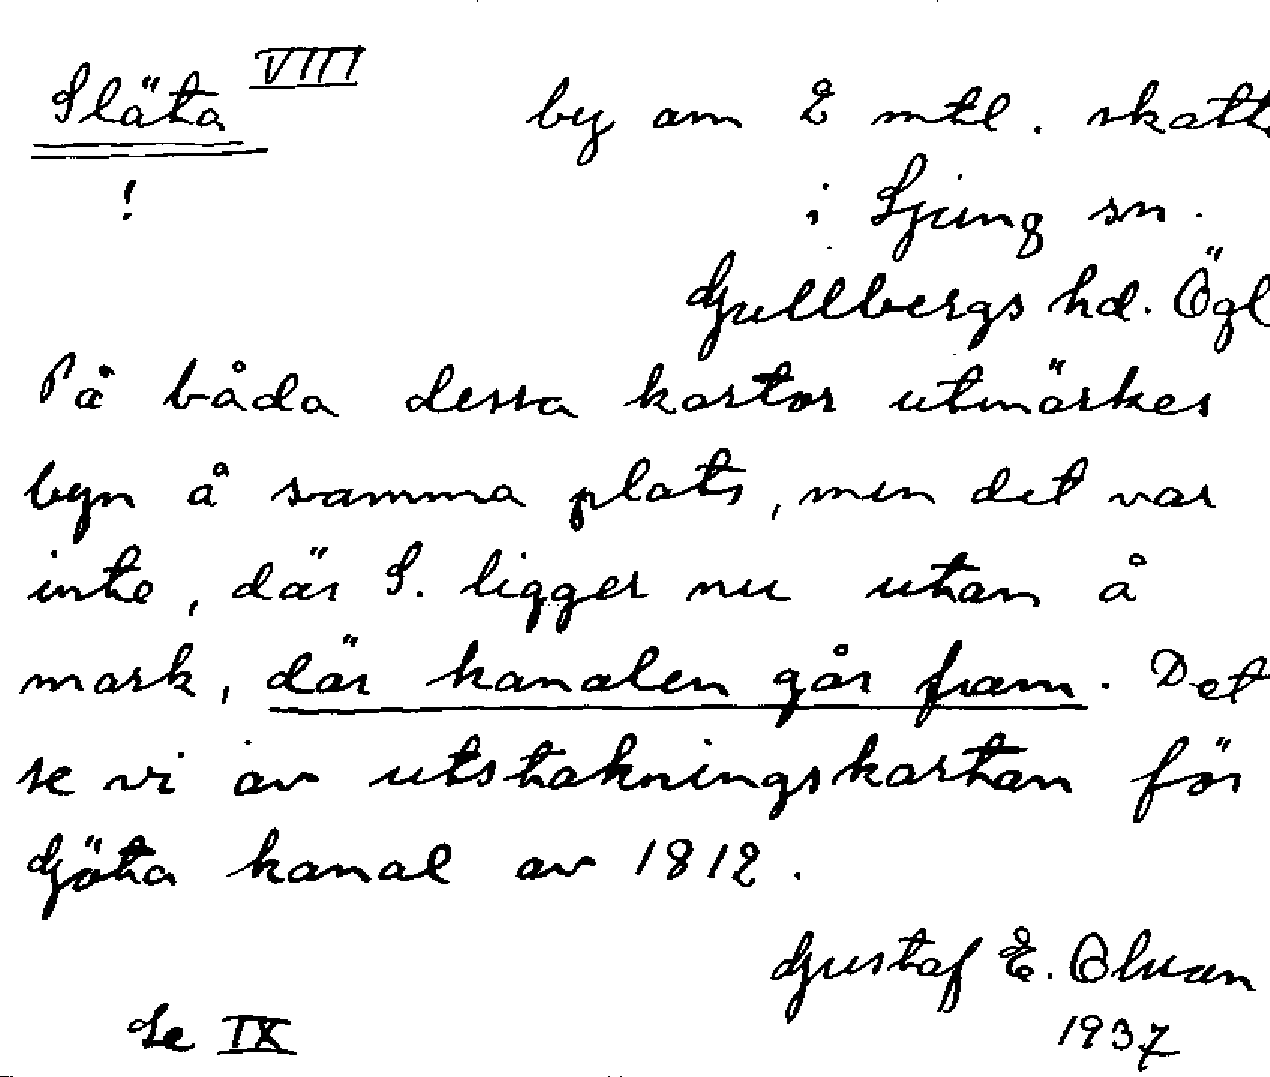 Släta VIII by om 2 mtl. skatt
! i Ljung sn.
Gullbergs hd. Ögl
På båda dessa kartor utmärkes
byn å samma plats, men det var
inte, där S. ligger nu utan å
mark, där kanalen går fram. Det
se vi av utstakningskartan för
Göta kanal av 1812.
Gustaf E. Olsson
Se IX 1937